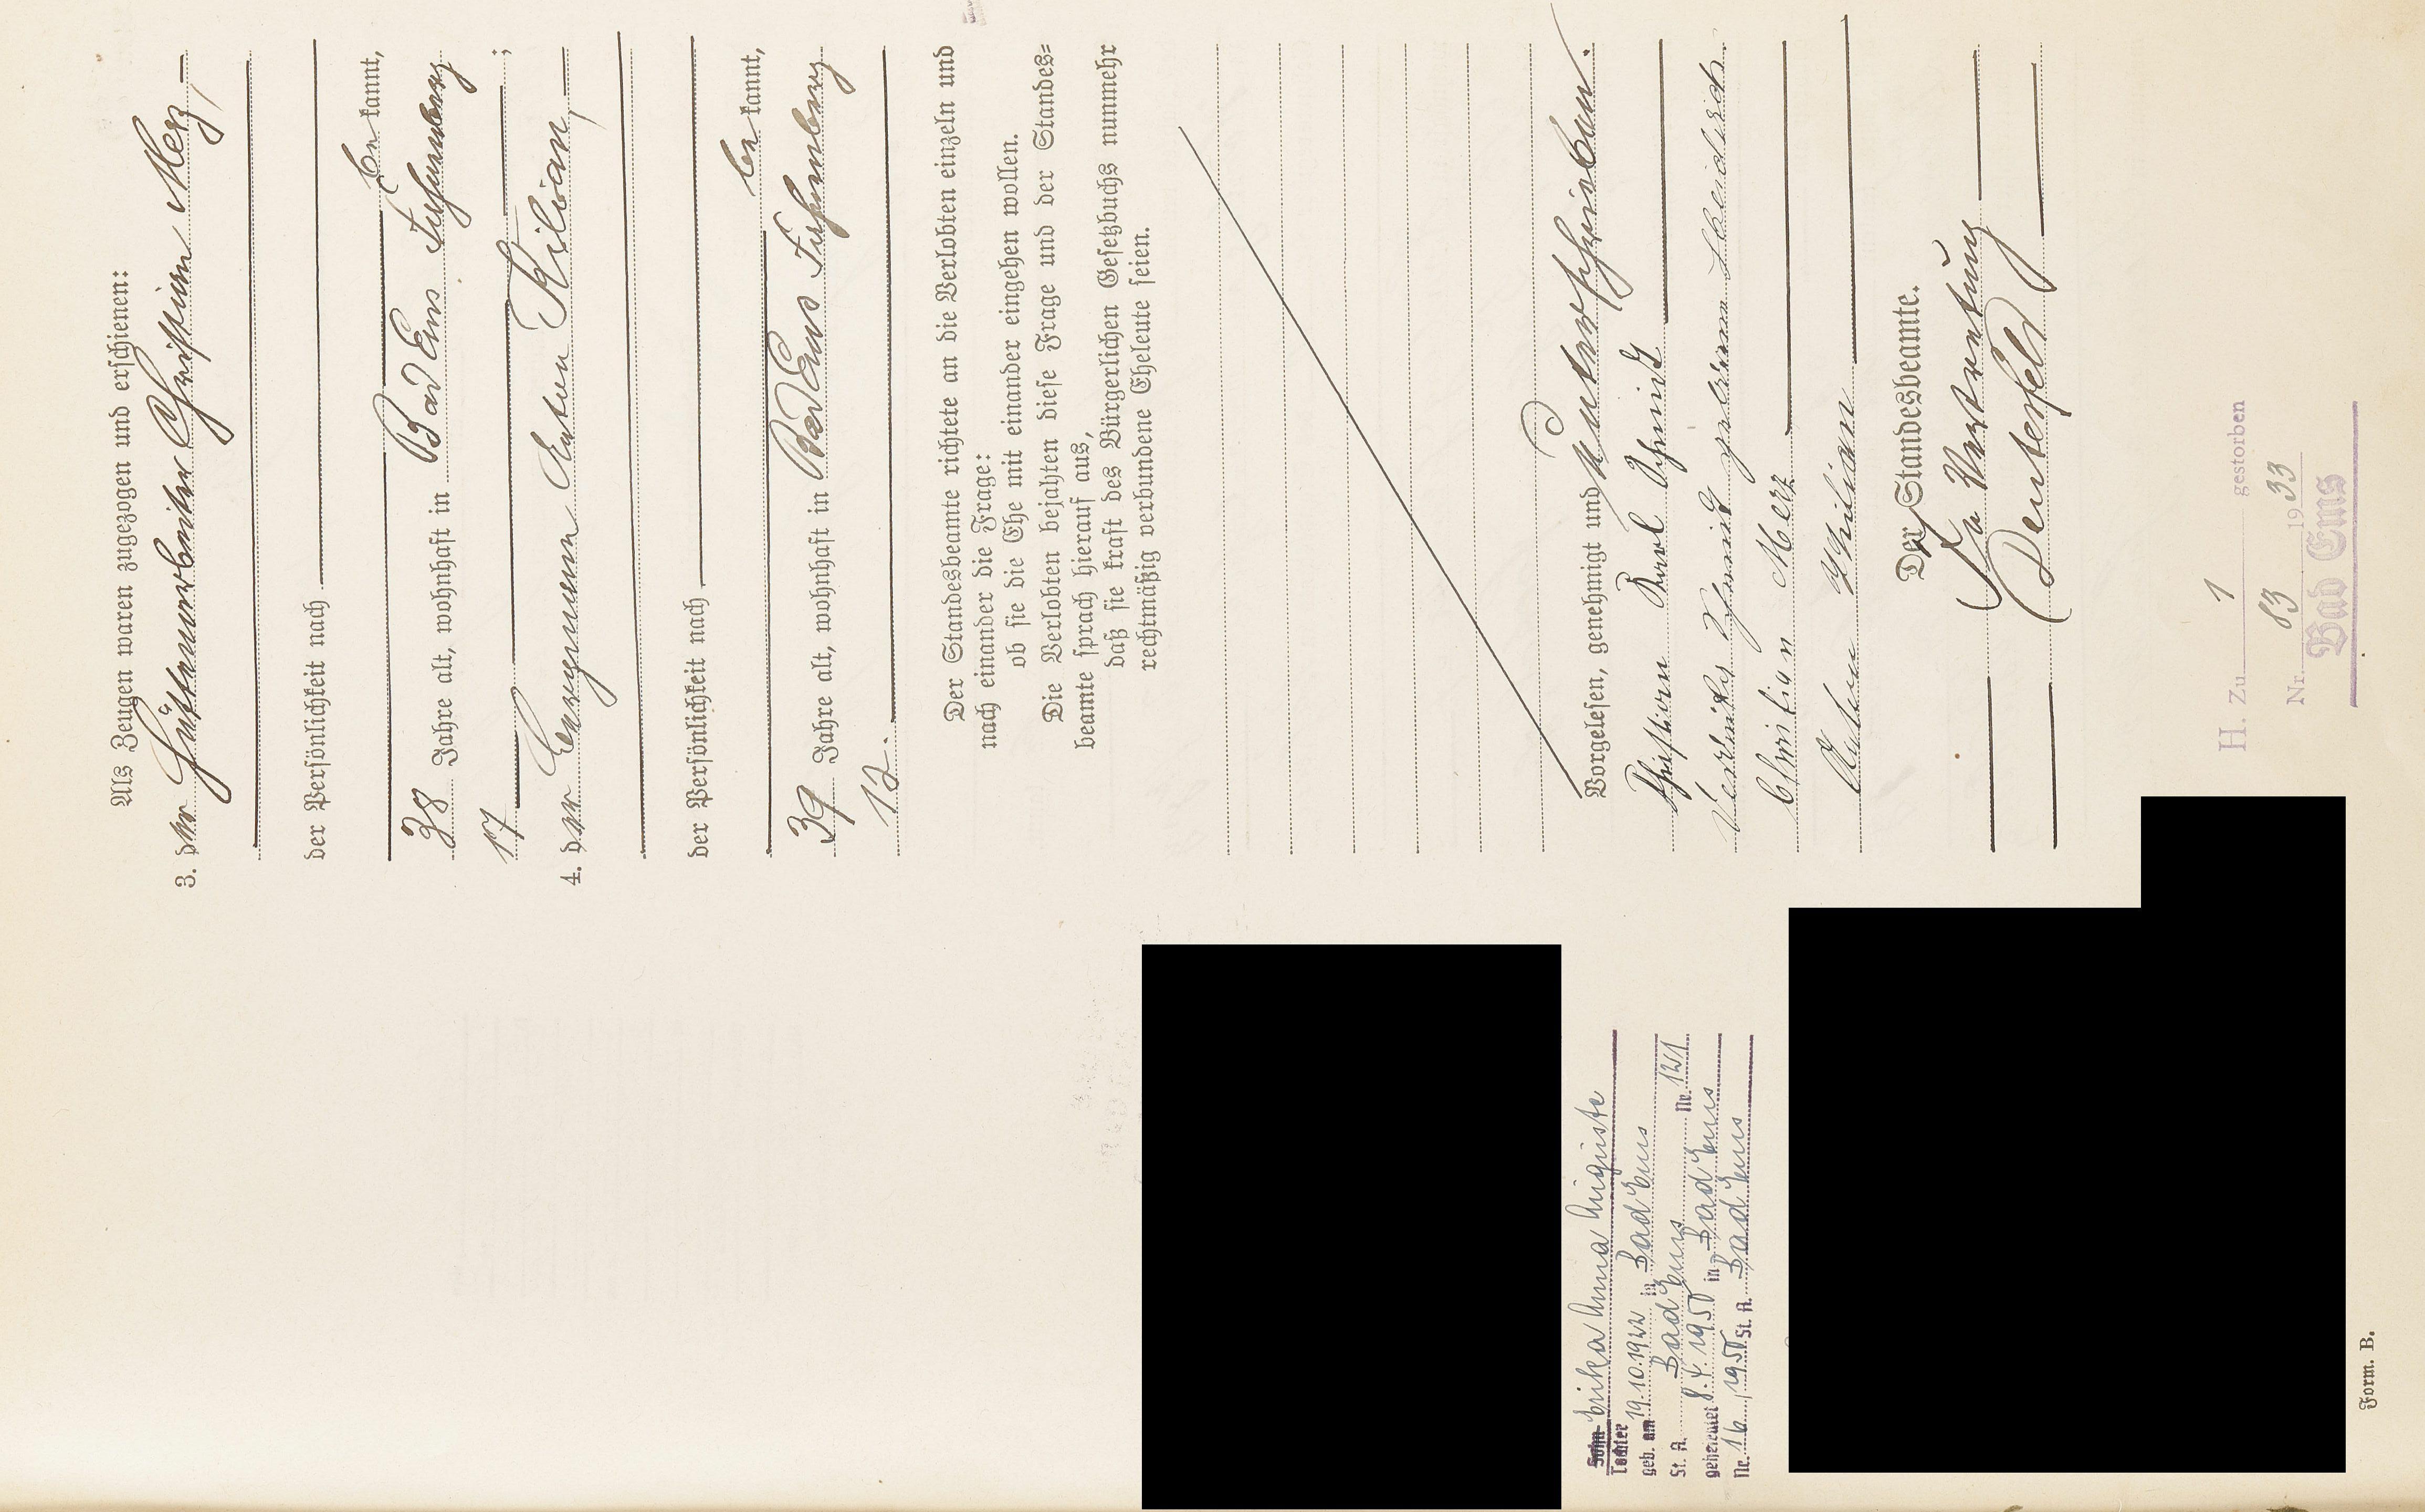 Als Zeugen waren zugezogen und erschienen:
3. der Hüttenarbeiter Christian Merz,
der Persönlichkeit nach
be kannt,
38 Jahre alt, wohnhaft in Bad Ems
17
4. der Bergmann Anton Kilian,
der Persönlichkeit nach
be kannt,
39 Jahre alt, wohnhaft in Bad Ems
12.
Der Standesbeamte richtete an die Verlobten einzeln und
nach einander die Frage:
ob sie die Ehe mit einander eingehen wollen.
Die Verlobten bejahten diese Frage und der Standes=
beamte sprach hierauf aus,
daß sie kraft des Bürgerlichen Gesetzbuchs nunmehr
rechtmäßig verbundene Eheleute seien.
Vorgelesen, genehmigt und unterschrieben.
Christian Karl Schmidt
Schmidt geborene
Christian Merz
Anton Kilian
Der Standesbeamte.
In Vertretung
H. Zu 1 gestorben
Nr. 83 1933
Bad Ems
Sohn Erika Anna Auguste
Tochter
geb. am 19.10.1922 in Bad Ems
St. A. Bad Ems Nr. 121
geheiratet 8.4.1950 in Bad Ems
Nr. 16/1950 St. A. Bad Ems
Form. B.